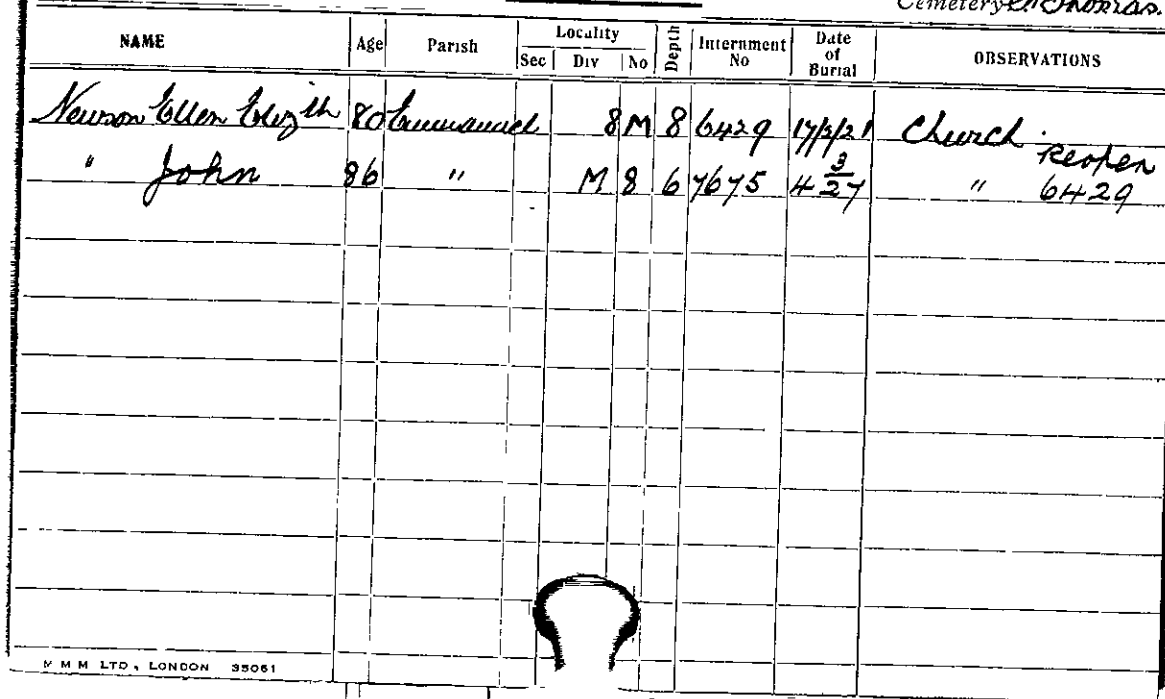 Cemetery St Thomas.
NAME Age Parish Locality Sec Div No Depth Internment No Date of Burial OBSERVATIONS
Newson Ellen Elizth 80 Emmanuel 8 M 8 6429 17/2/21 Church. Reopen
" John 86 " M 8 6 7675 4 3/27 " 6429
M M M LTD, LONDON 35061